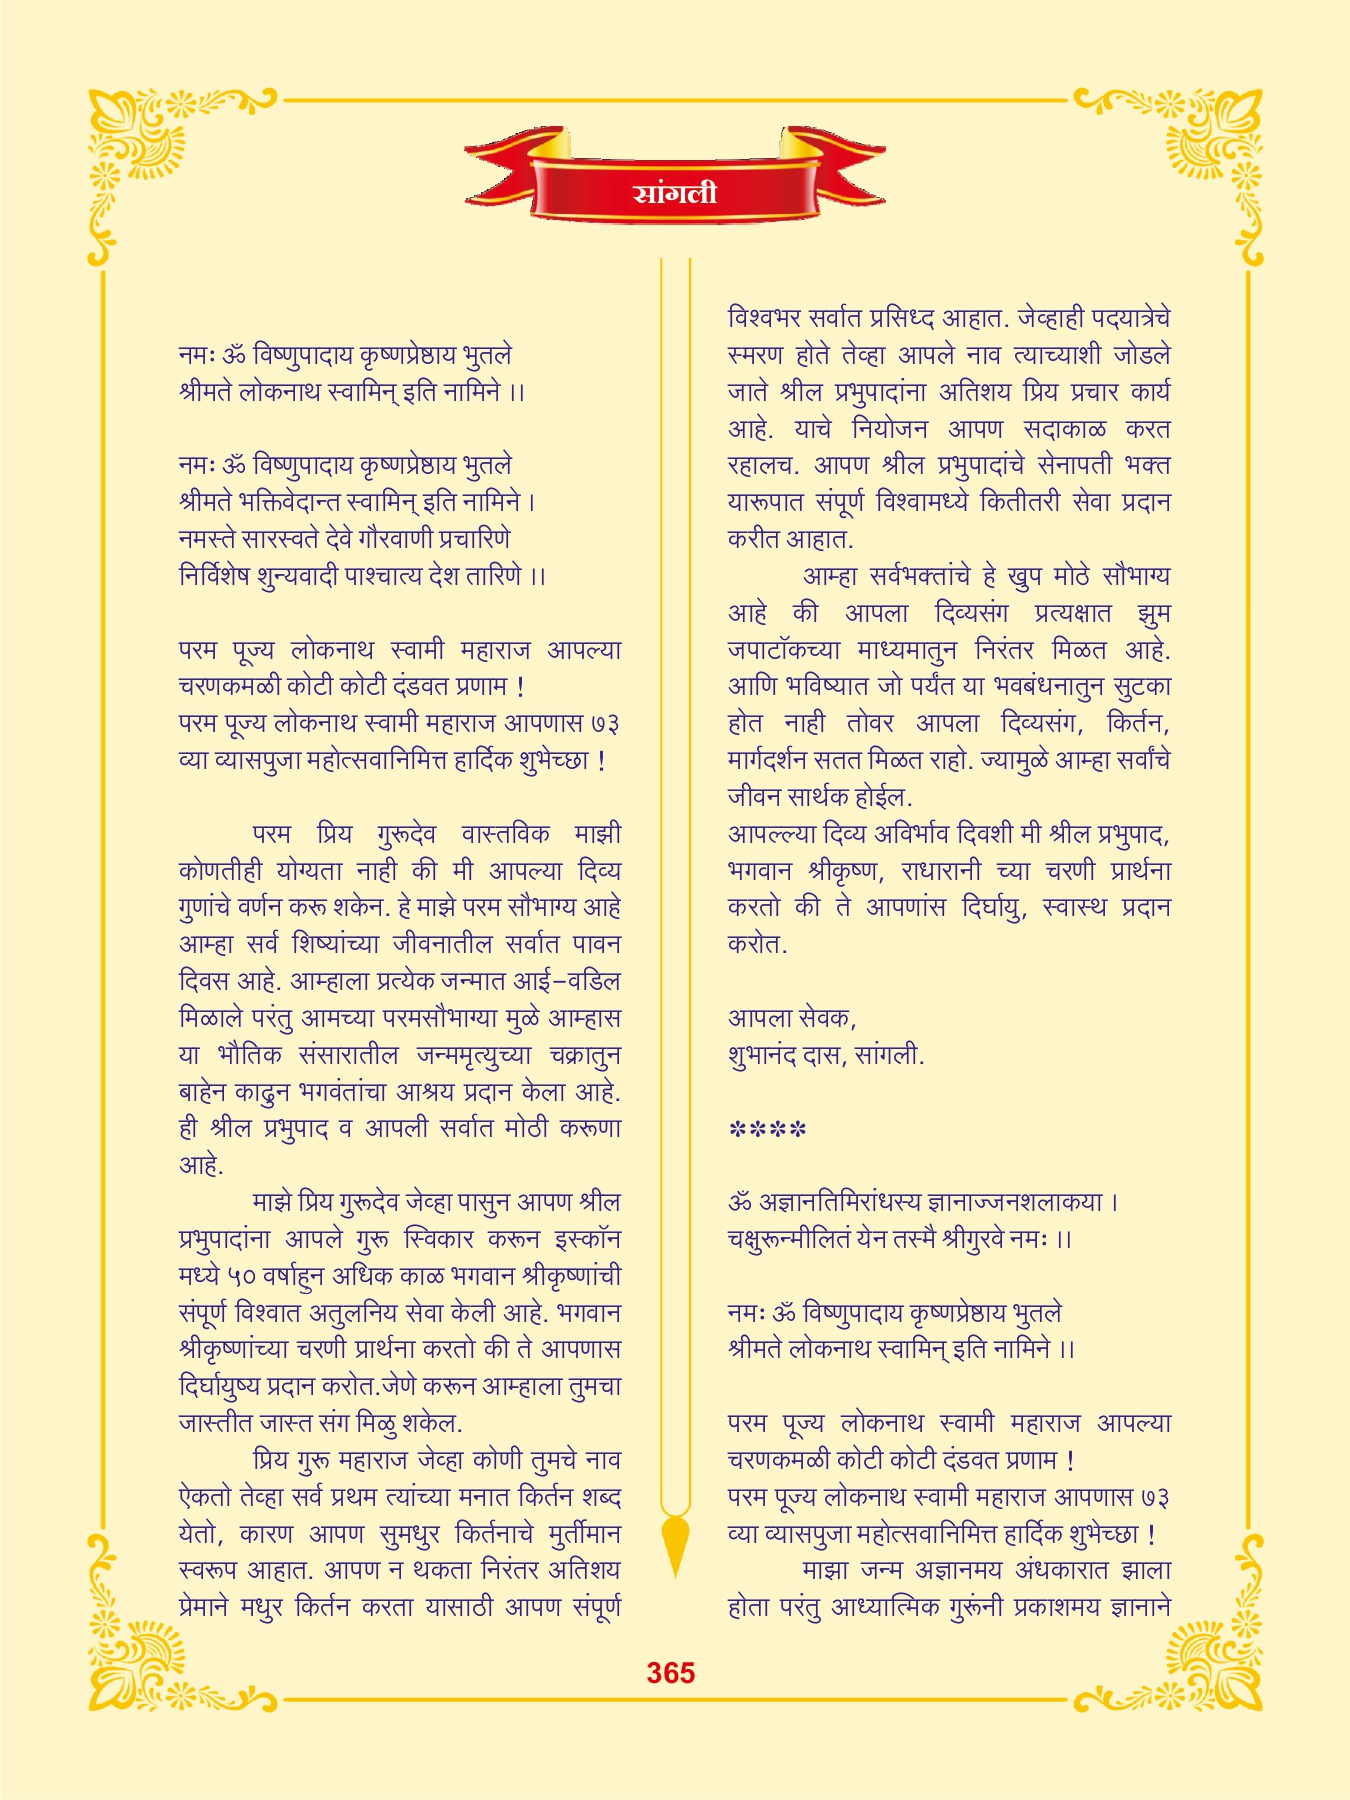 सांगली
नमः ॐ विष्णुपादाय कृष्णप्रेष्ठाय भुतले
श्रीमते लोकनाथ स्वामिन् इति नामिने ।।
नमः ॐ विष्णुपादाय कृष्णप्रेष्ठाय भुतले
श्रीमते भक्तिवेदान्त स्वामिन् इति नामिने ।
नमस्ते सारस्वते देवे गौरवाणी प्रचारिणे
निर्विशेष शुन्यवादी पाश्चात्य देश तारिणे ।।
परम पूज्य लोकनाथ स्वामी महाराज आपल्या
चरणकमळी कोटी कोटी दंडवत प्रणाम !
परम पूज्य लोकनाथ स्वामी महाराज आपणास ७३
व्या व्यासपुजा महोत्सवानिमित्त हार्दिक शुभेच्छा !
परम प्रिय गुरूदेव वास्तविक माझी
कोणतीही योग्यता नाही की मी आपल्या दिव्य
गुणांचे वर्णन करू शकेन. हे माझे परम सौभाग्य आहे
आम्हा सर्व शिष्यांच्या जीवनातील सर्वात पावन
दिवस आहे. आम्हाला प्रत्येक जन्मात आई-वडिल
मिळाले परंतु आमच्या परमसौभाग्या मुळे आम्हास
या भौतिक संसारातील जन्ममृत्युच्या चक्रातुन
बाहेन काढुन भगवंतांचा आश्रय प्रदान केला आहे.
ही श्रील प्रभुपाद व आपली सर्वात मोठी करूणा
आहे.
माझे प्रिय गुरूदेव जेव्हा पासुन आपण श्रील
प्रभुपादांना आपले गुरू स्विकार करून इस्कॉन
मध्ये ५० वर्षाहुन अधिक काळ भगवान श्रीकृष्णांची
संपूर्ण विश्वात अतुलनिय सेवा केली आहे. भगवान
श्रीकृष्णांच्या चरणी प्रार्थना करतो की ते आपणास
दिर्घायुष्य प्रदान करोत.जेणे करून आम्हाला तुमचा
जास्तीत जास्त संग मिळु शकेल.
प्रिय गुरू महाराज जेव्हा कोणी तुमचे नाव
ऐकतो तेव्हा सर्व प्रथम त्यांच्या मनात किर्तन शब्द
येतो, कारण आपण सुमधुर किर्तनाचे मुर्तीमान
स्वरूप आहात. आपण न थकता निरंतर अतिशय
प्रेमाने मधुर किर्तन करता यासाठी आपण संपूर्ण
विश्वभर सर्वात प्रसिध्द आहात. जेव्हाही पदयात्रेचे
स्मरण होते तेव्हा आपले नाव त्याच्याशी जोडले
जाते श्रील प्रभुपादांना अतिशय प्रिय प्रचार कार्य
आहे. याचे नियोजन आपण सदाकाळ करत
रहालच. आपण श्रील प्रभुपादांचे सेनापती भक्त
यारूपात संपूर्ण विश्वामध्ये कितीतरी सेवा प्रदान
करीत आहात.
आम्हा सर्वभक्तांचे हे खुप मोठे सौभाग्य
आहे की आपला दिव्यसंग प्रत्यक्षात झुम
जपाटॉकच्या माध्यमातुन निरंतर मिळत आहे.
आणि भविष्यात जो पर्यंत या भवबंधनातुन सुटका
होत नाही तोवर आपला दिव्यसंग, किर्तन,
मार्गदर्शन सतत मिळत राहो. ज्यामुळे आम्हा सर्वांचे
जीवन सार्थक होईल.
आपल्ल्या दिव्य अविर्भाव दिवशी मी श्रील प्रभुपाद,
भगवान श्रीकृष्ण, राधारानी च्या चरणी प्रार्थना
करतो की ते आपणांस दिर्घायु, स्वास्थ प्रदान
करोत.
आपला सेवक,
शुभानंद दास, सांगली.
****
ॐ अज्ञानतिमिरांधस्य ज्ञानाज्जनशलाकया ।
चक्षुरून्मीलितं येन तस्मै श्रीगुरवे नमः ।।
नमः ॐ विष्णुपादाय कृष्णप्रेष्ठाय भुतले
श्रीमते लोकनाथ स्वामिन् इति नामिने ।।
परम पूज्य लोकनाथ स्वामी महाराज आपल्या
चरणकमळी कोटी कोटी दंडवत प्रणाम !
परम पूज्य लोकनाथ स्वामी महाराज आपणास ७३
व्या व्यासपुजा महोत्सवानिमित्त हार्दिक शुभेच्छा !
माझा जन्म अज्ञानमय अंधकारात झाला
होता परंतु आध्यात्मिक गुरूंनी प्रकाशमय ज्ञानाने
365